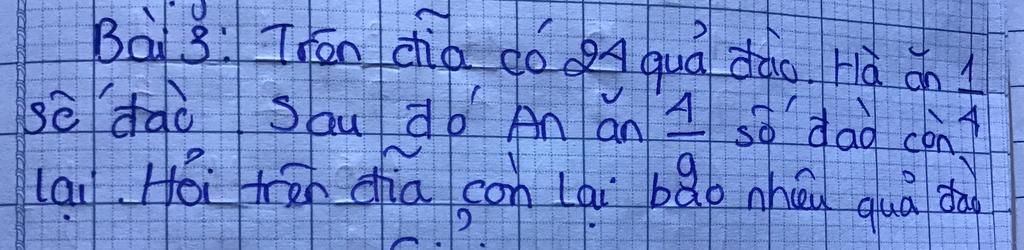 Bài 3: Trên đĩa có 24 quả đào. Hà ăn 1/4
số đào Sau đó An ăn 4/9 số đào còn
lại. Hỏi trên đĩa còn lại bao nhiêu quả đào
?